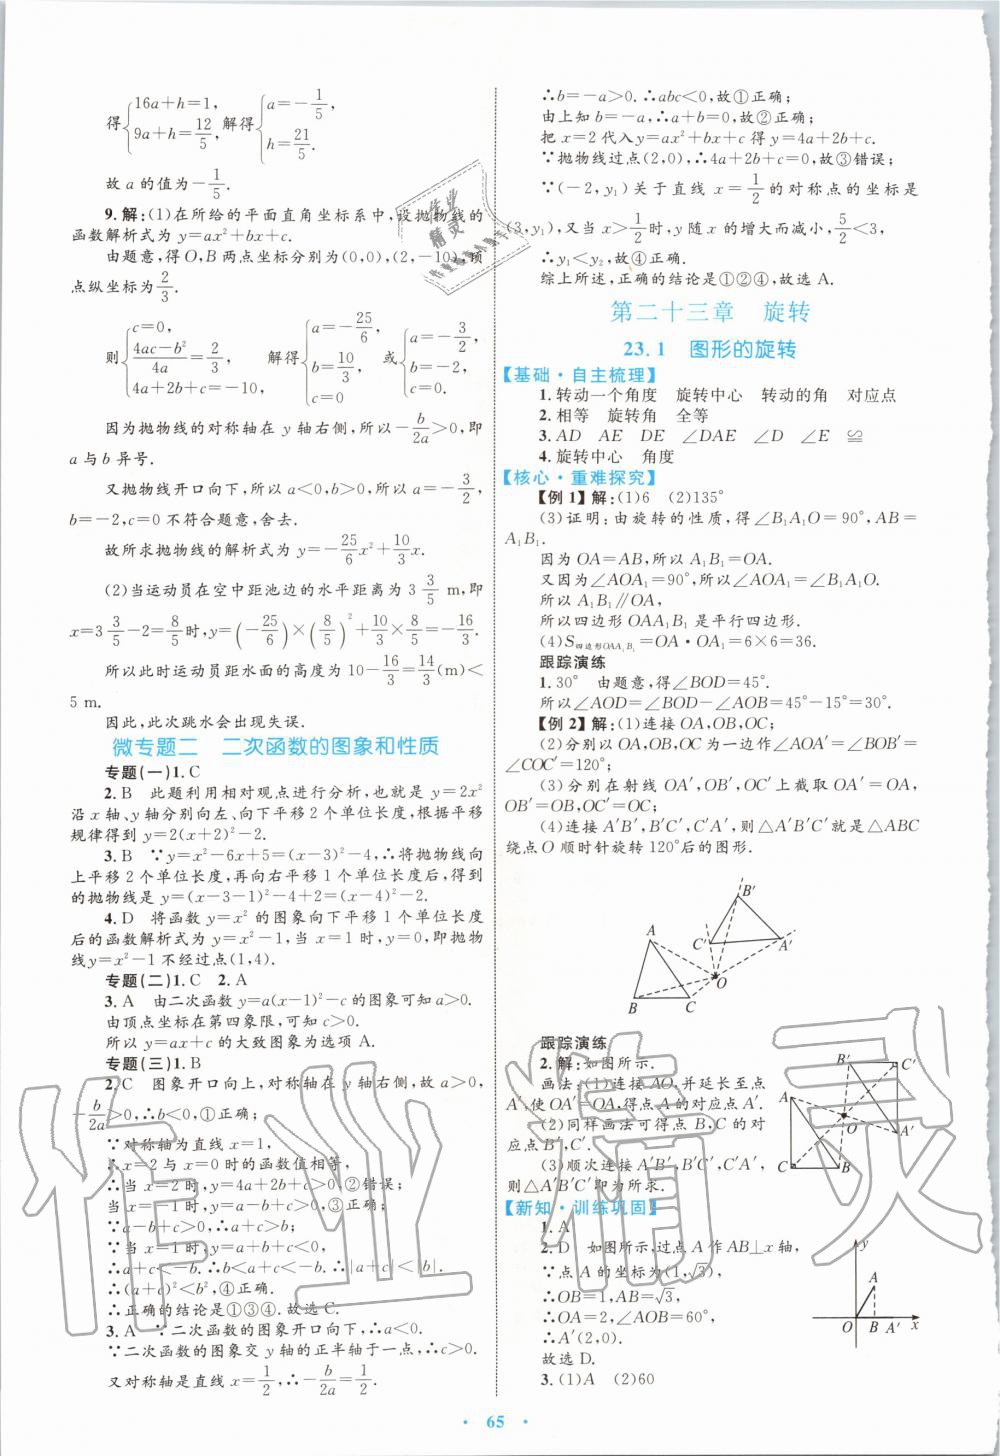 得{16a+h=1, 9a+h=12/5, 解得{a=-1/5, h=21/5.
故 a 的值为-1/5.
9.解:(1)在所给的平面直角坐标系中,设抛物线的
函数解析式为 y=ax²+bx+c.
由题意,得 O,B 两点坐标分别为(0,0),(2,-10),顶
点纵坐标为2/3.
则{c=0, (4ac-b²)/4a=2/3, 4a+2b+c=-10, 解得{a=-25/6, b=10/3, c=0 或{a=-3/2, b=-2, c=0.
因为抛物线的对称轴在 y 轴右侧,所以-b/2a>0,即
a 与 b 异号.
又抛物线开口向下,所以 a<0,b>0,所以 a=-3/2,
b=-2,c=0 不符合题意,舍去.
故所求抛物线的解析式为 y=-25/6x²+10/3x.
(2)当运动员在空中距池边的水平距离为 3 3/5 m,即
x=3 3/5-2=8/5时,y=(-25/6)×(8/5)²+10/3×8/5=-16/3.
所以此时运动员距水面的高度为 10-16/3=14/3(m)<
5 m.
因此,此次跳水会出现失误.
微专题二 二次函数的图象和性质
专题(一)1.C
2.B 此题利用相对观点进行分析,也就是 y=2x²
沿 x 轴、y 轴分别向左、向下平移2个单位长度,根据平移
规律得到 y=2(x+2)²-2.
3.B ∵y=x²-6x+5=(x-3)²-4,∴将抛物线向
上平移 2 个单位长度,再向右平移 1 个单位长度后,得到
的抛物线是 y=(x-3-1)²-4+2=(x-4)²-2.
4.D 将函数 y=x² 的图象向下平移 1 个单位长度
后的函数解析式为 y=x²-1,当 x=1 时,y=0,即抛物
线y=x²-1 不经过点(1,4).
专题(二)1.C 2.A
3.A 由二次函数 y=a(x-1)²-c 的图象可知 a>0.
由顶点坐标在第四象限,可知 c>0.
所以 y=ax+c 的大致图象为选项 A.
专题(三)1.B
2.C 图象开口向上,对称轴在 y 轴右侧,故 a>0,
-b/2a>0,∴b<0,①正确;
∵对称轴为直线 x=1,
∴x=2 与 x=0 时的函数值相等,
∴当 x=2 时,y=4a+2b+c>0,②错误;
当 x=-1 时,y=a-b+c>0,③正确;
∵a-b+c>0,∴a+c>b;
∵当 x=1 时,y=a+b+c<0,
∴a+c<-b.∴b<a+c<-b.∴|a+c|<|b|.
∴(a+c)²<b²,④正确.
∴正确的结论是①③④.故选 C.
3.A ∵二次函数的图象开口向下,∴a<0.
∵二次函数的图象交 y 轴的正半轴于一点,∴c>0.
又对称轴是直线 x=1/2,∴-b/2a=1/2.
∴b=-a>0.∴abc<0,故①正确;
由上知 b=-a,∴a+b=0,故②正确;
把 x=2 代入y=ax²+bx+c 得 y=4a+2b+c.
∵抛物线过点(2,0),∴4a+2b+c=0,故③错误;
∵(-2,y₁)关于直线 x=1/2的对称点的坐标是
(3,y₁),又当 x>1/2时,y 随 x 的增大而减小,5/2<3,
∴y₁<y₂,故④正确.
综上所述,正确的结论是①②④,故选 A.
第二十三章 旋转
23.1 图形的旋转
【基础·自主梳理】
1.转动一个角度 旋转中心 转动的角 对应点
2.相等 旋转角 全等
3.AD AE DE ∠DAE ∠D ∠E ≌
4.旋转中心 角度
【核心·重难探究】
【例 1】解:(1)6 (2)135°
(3)证明:由旋转的性质,得∠B₁A₁O=90°,AB=
A₁B₁.
因为 OA=AB,所以 A₁B₁=OA.
又因为∠AOA₁=90°,所以∠AOA₁=∠B₁A₁O.
所以 A₁B₁∥OA,
所以四边形 OAA₁B₁ 是平行四边形.
(4)S四边形OAA₁B₁=OA·OA₁=6×6=36.
跟踪演练
1.30° 由题意,得∠BOD=45°.
所以∠AOD=∠BOD-∠AOB=45°-15°=30°.
【例 2】解:(1)连接 OA,OB,OC;
(2)分别以 OA,OB,OC 为一边作∠AOA'=∠BOB'=
∠COC'=120°;
(3)分别在射线 OA',OB',OC'上截取 OA'=OA,
OB'=OB,OC'=OC;
(4)连接 A'B',B'C',C'A',则△A'B'C'就是△ABC
绕点 O 顺时针旋转 120°后的图形.
B'
A
C'
A'
O
B
C
跟踪演练
2.解:如图所示.
画法:(1)连接 AO,并延长至点
A',使 OA'=OA,得点 A 的对应点 A'.
(2)同样画法可得点 B,C 的对
应点B',C'.
(3)顺次连接 A'B',B'C',C'A',
则△A'B'C'即为所求.
B'
C'
A
O
A'
C
B
【新知·训练巩固】
1.A
2.D 如图所示,过点 A 作AB⊥x 轴,
∵点A 的坐标为(1,√3),
∴OB=1,AB=√3,
∴OA=2,∠AOB=60°,
∴A'(2,0).
故选 D.
y
A
O
B
A'
x
3.(1)A (2)60
65
作业
精灵
作业精灵